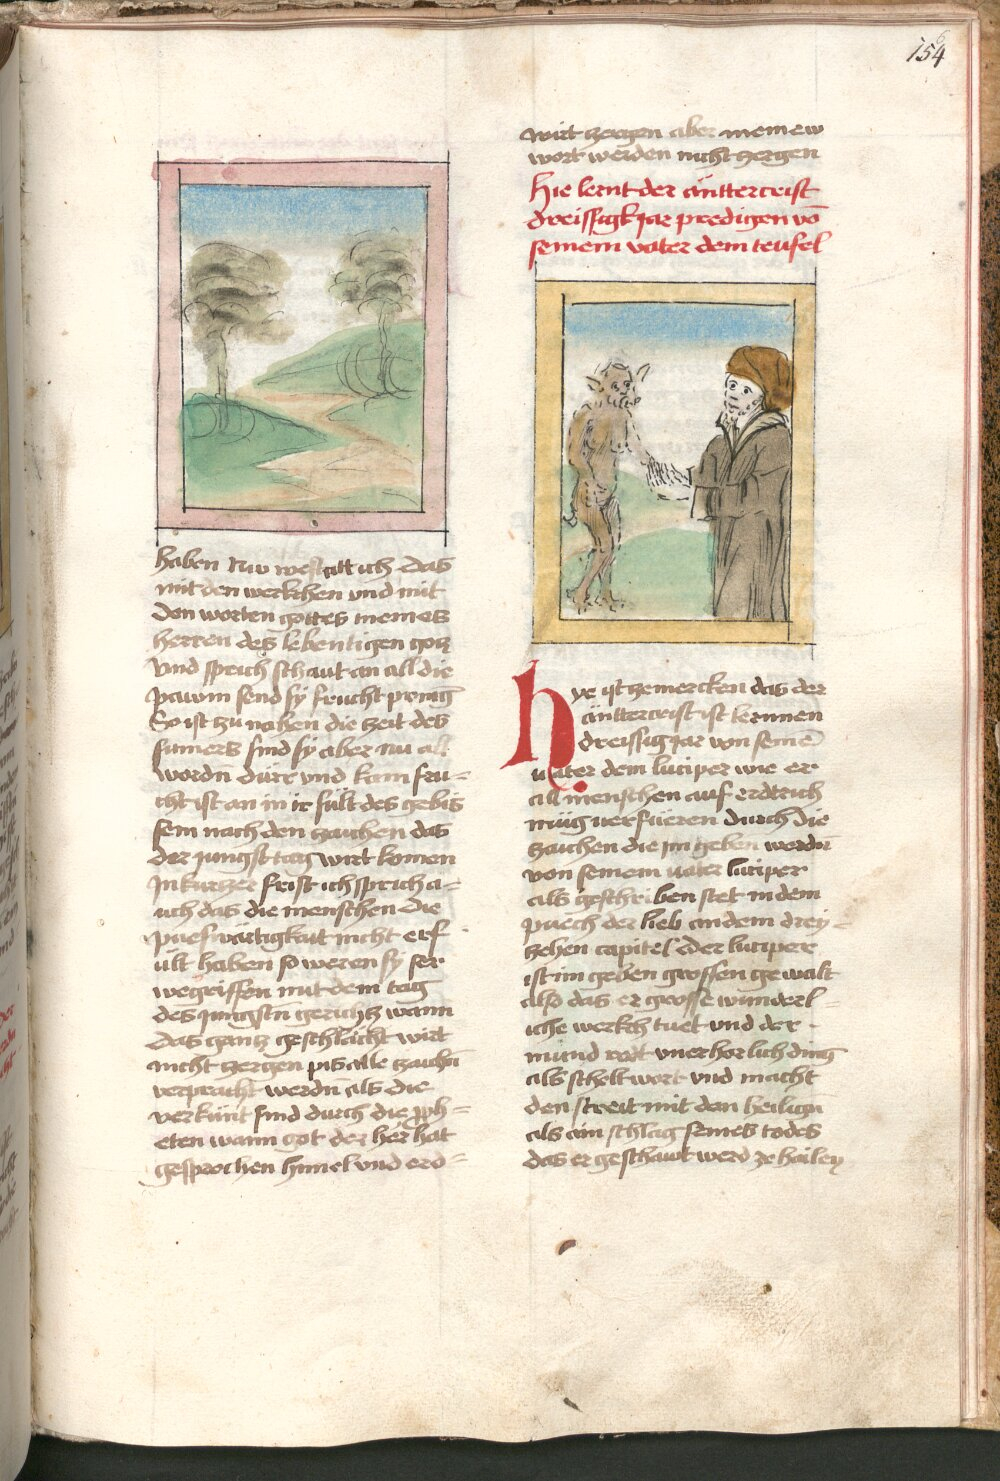 154
haben Nw westätt ich das
mit den werkchen vnd mit
den worten gottes meines
herren des lebentigen gotz
vnd sprich schaut an all die
pawm send sy frucht pringen
So ist zu nahen die zeit des
sumers sind sy aber nu all
wordn dürr vnd kain fru=
cht ist an in ir sült des gebis
sein nach den zaichen das
der jungst tag wirt komen
In kurtzer frist ich sprich a=
uch das die menschen die
pueswürtigkait nicht erf
ült haben so weren sy ser
wegriffen mit dem tag
des jungstn gerichtz wann
das gantz geschlächt wirt
nicht zergen pis alle zaichn
verpracht werdn als die
verkünt sind durch die pph=
eten wann got der her hat
gesprochen himel vnd erd=
wirt zergen aber meinew
wort werden nicht zergen
hie lernt der äntterceist
dreissigk jar predigen vō
seinem vater dem teufel
hye ist zemercken das der
äntterceist ist lernnen
dreissig jar von seinē
uater dem luciper wie er
all menschen auf erdtrich
müg verfüeren durch die
zaichen die jm geben werdn
von seinem uater luciper
als geschriben stet in dem
puech der lieb an dem drey=
zehen capitel der luciper
ist im geben grossen gewalt
also das er grosse wunderl=
iche werkch tuet vnd der
mund redt vnerhorlich ding
als scheltwort vnd macht
den streit mit den heiligen
als ain schlag seines todes
das er geschawt werd ze hailen